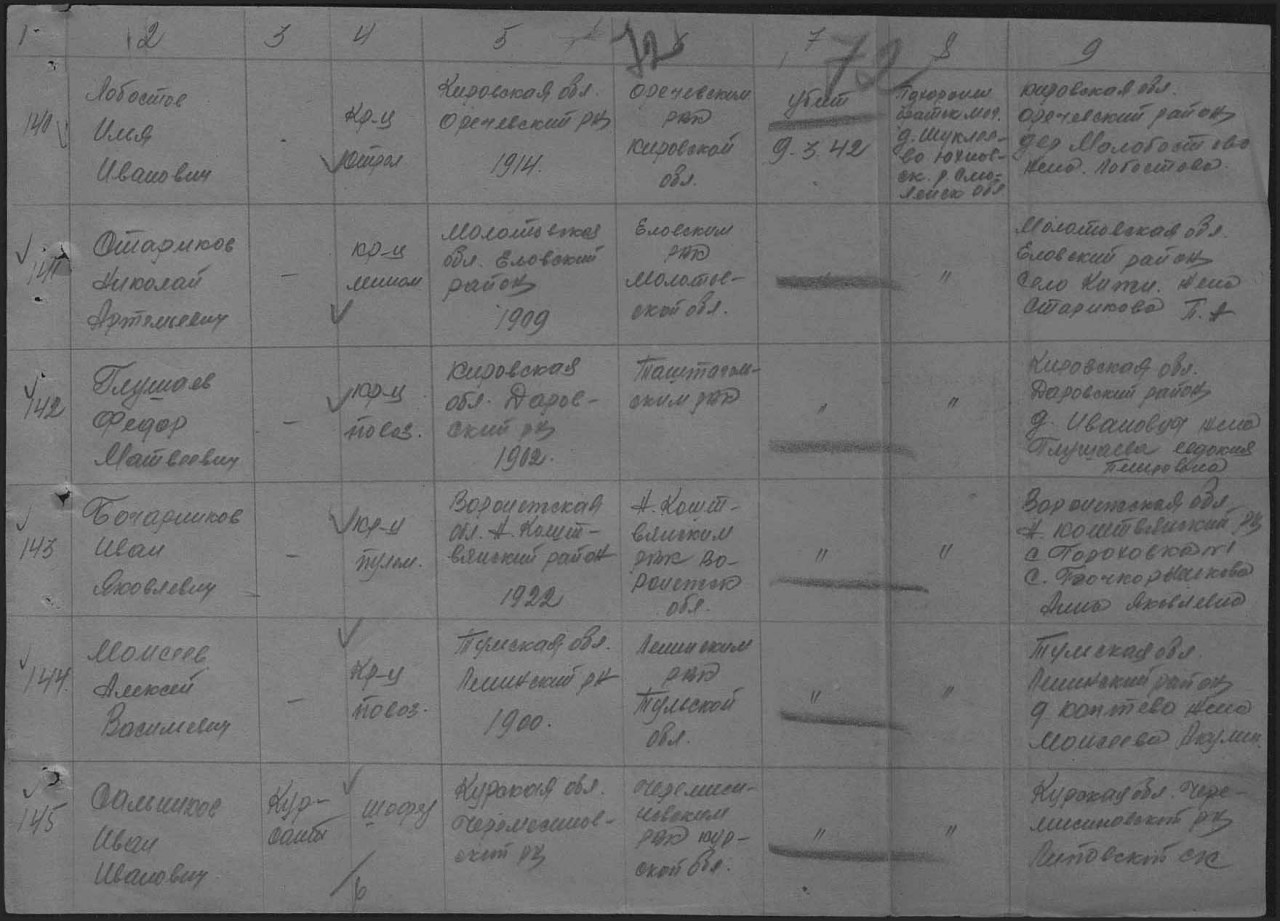 1 2 3 4 5 7 8 9
72
72
140
Лобостов
Илья
Иванович
-
Кр-ц
Кировская обл.
Оречевский рн
1914.
Оречевским
рвк
Кировской
обл.
убит
9.3.42
Кировская обл.
Оречевский район
дер
жена. Лобостова.
141
Стариков
Николай
Артемьевич
-
кр-ц
Молотовская
обл. Еловский
район
1909
Еловским
рвк
Молотов-
ской обл.
"
Молотовская обл.
Еловский район
село жена
Старикова П. А
142
Глушаев
Федор
Матвеевич
-
кр-ц
повоз.
Кировская
обл. Даров-
ский рн
1902.
Таштагол-
ским рвк
"
"
Кировская обл.
Даровский район
д. жена
Глушаева Евдокия
143
Бочарников
Иван
Яковлевич
-
кр-ц
пулем.
Воронежская
обл.
район
1922
рвк Во-
ронежск
обл.
"
"
Воронежская обл.
с. Гороховка
Анна Яковлевна
144
Моисеев
Алексей
Васильевич
-
Кр-ц
повоз.
Тульская обл.
Ленинский рн
1900.
Ленинским
рвк
Тульской
обл.
"
"
Тульская обл.
Ленинский район
д жена
Моисеева Акулин.
145
Сальников
Иван
Иванович
Кур-
сант
шофер
Курская обл.
Черемисинов-
ский рн
Черемиси-
новским
рвк Кур-
ской обл.
"
"
Курская обл. Чере-
мисиновский рн
Липовский с/с